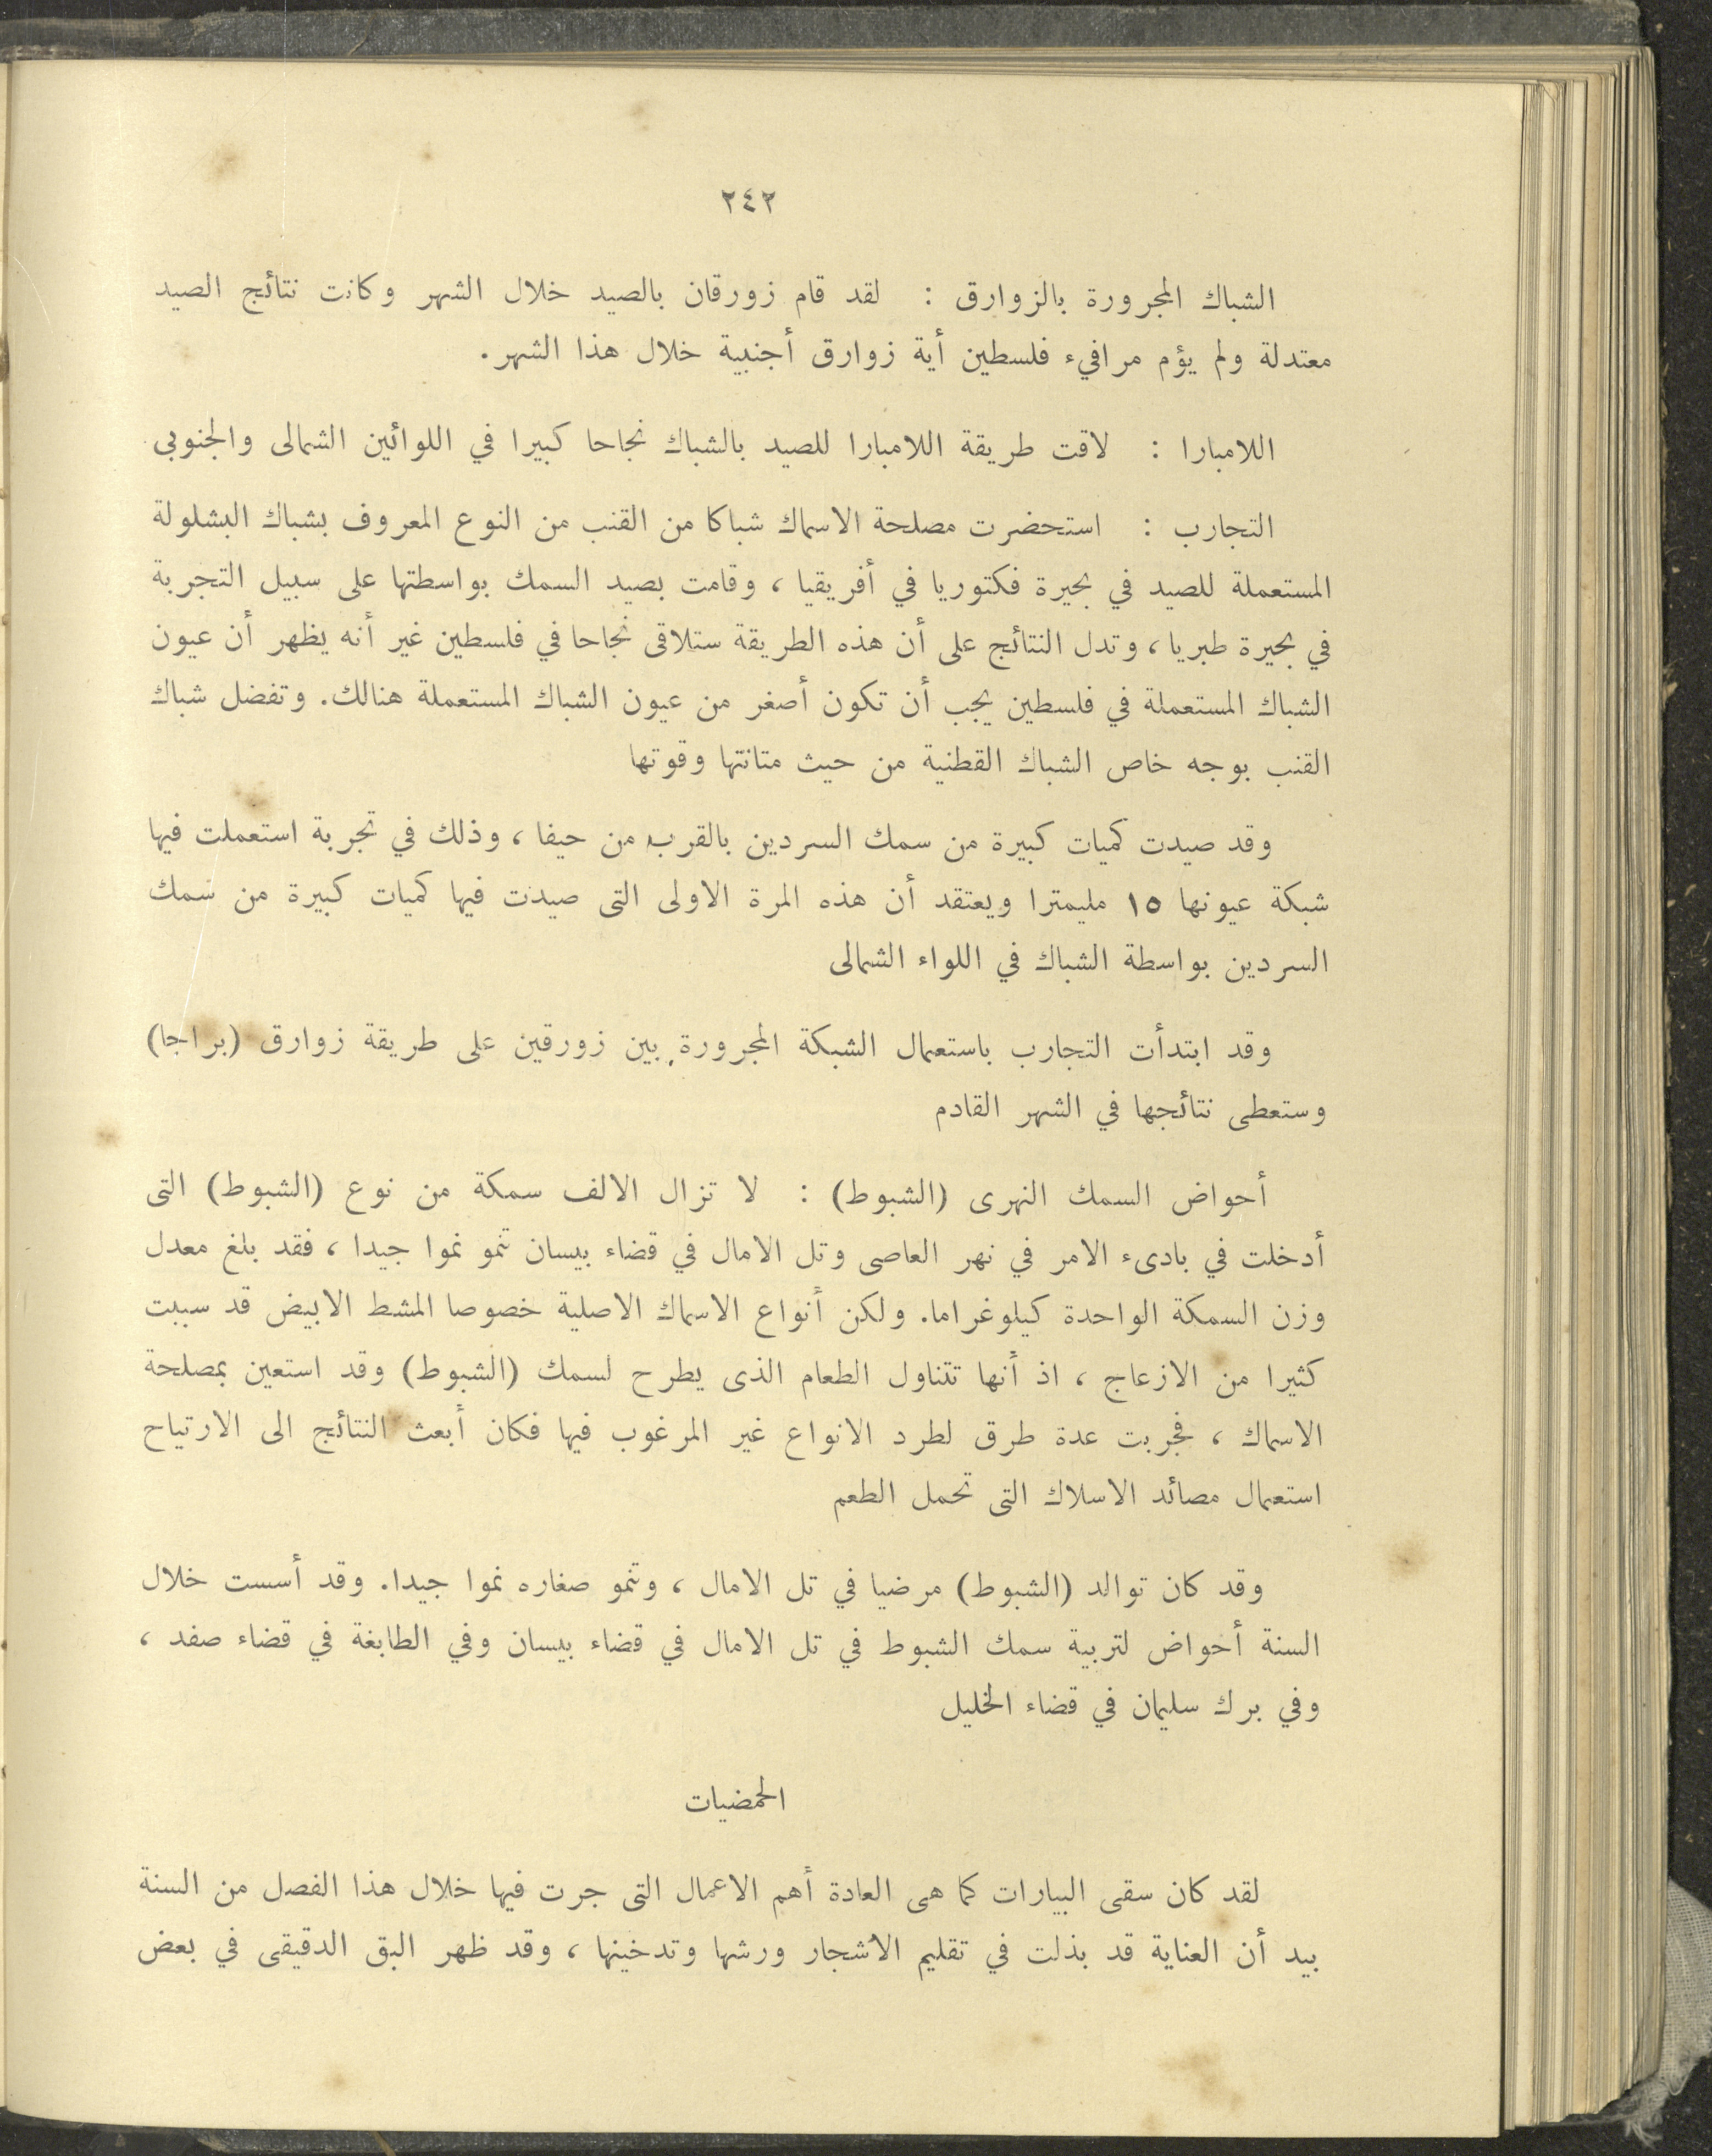 ٢٤٢
الشباك المجرورة بالزوارق : لقد قام زورقان بالصيد خلال الشهر وكانت نتائج الصيد
معتدلة ولم يؤم مرافيء فلسطين أية زوارق أجنبية خلال هذا الشهر.
اللامبارا : لاقت طريقة اللامبارا للصيد بالشباك نجاحا كبيرا في اللوائين الشمالى والجنوبى
التجارب : استحضرت مصلحة الاسماك شباكا من القنب من النوع المعروف بشباك البشلولة
المستعملة للصيد في بحيرة فكتوريا في أفريقيا ، وقامت بصيد السمك بواسطتها على سبيل التجربة
في بحيرة طبريا ، وتدل النتائج على أن هذه الطريقة ستلاقى نجاحا في فلسطين غير أنه يظهر أن عيون
الشباك المستعملة في فلسطين يجب أن تكون أصغر من عيون الشباك المستعملة هنالك. وتفضل شباك
القنب بوجه خاص الشباك القطنية من حيث متانتها وقوتها
وقد صيدت كميات كبيرة من سمك السردين بالقرب من حيفا ، وذلك في تجربة استعملت فيها
شبكة عيونها ١٥ مليمترا ويعتقد أن هذه المرة الاولى التى صيدت فيها كميات كبيرة من سمك
السردين بواسطة الشباك في اللواء الشمالى
وقد ابتدأت التجارب باستعمال الشبكة المجرورة بين زورقين على طريقة زوارق (براجا)
وستعطى نتائجها في الشهر القادم
أحواض السمك النهرى (الشبوط) : لا تزال الالف سمكة من نوع (الشبوط) التى
أدخلت في بادىء الامر في نهر العاصى وتل الامال في قضاء بيسان تنمو نموا جيدا ، فقد بلغ معدل
وزن السمكة الواحدة كيلوغراما. ولكن أنواع الاسماك الاصلية خصوصا المشط الابيض قد سببت
كثيرا من الازعاج ، اذ أنها تتناول الطعام الذى يطرح لسمك (الشبوط) وقد استعين بمصلحة
الاسماك ، فجربت عدة طرق لطرد الانواع غير المرغوب فيها فكان أبعث النتائج الى الارتياح
استعمال مصائد الاسلاك التى تحمل الطعم
وقد كان توالد (الشبوط) مرضيا في تل الامال ، وتنمو صغاره نموا جيدا. وقد أسست خلال
السنة أحواض لتربية سمك الشبوط في تل الامال في قضاء بيسان وفي الطابغة في قضاء صفد ،
وفي برك سليمان في قضاء الخليل
الحمضيات
لقد كان سقى البيارات كما هى العادة أهم الاعمال التى جرت فيها خلال هذا الفصل من السنة
بيد أن العناية قد بذلت في تقليم الاشجار ورشها وتدخينها ، وقد ظهر البق الدقيقى في بعض